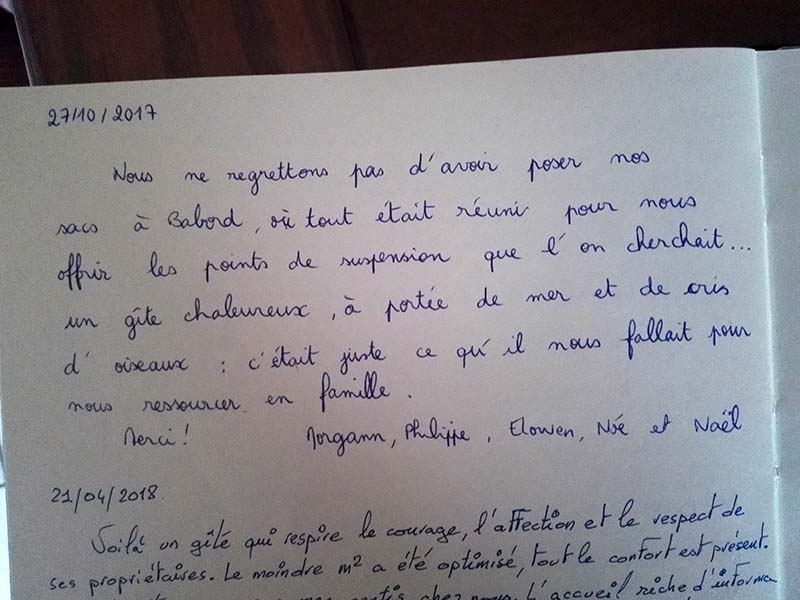 27/10/2017
Nous ne regrettons pas d'avoir poser nos
sacs à Babord, où tout était réuni pour nous
offrir les points de suspension que l'on cherchait...
un gîte chaleureux, à portée de mer et de cris
d'oiseaux : c'était juste ce qu'il nous fallait pour
nous ressourcer en famille.
Merci ! Morgann, Philippe, Elowen, Noé et Naël
21/04/2018.
Voilà un gîte qui respire le courage, l'affection et le respect de
ses propriétaires. Le moindre m² a été optimisé, tout le confort est présent.
chez nous. L'accueil riche d'informa